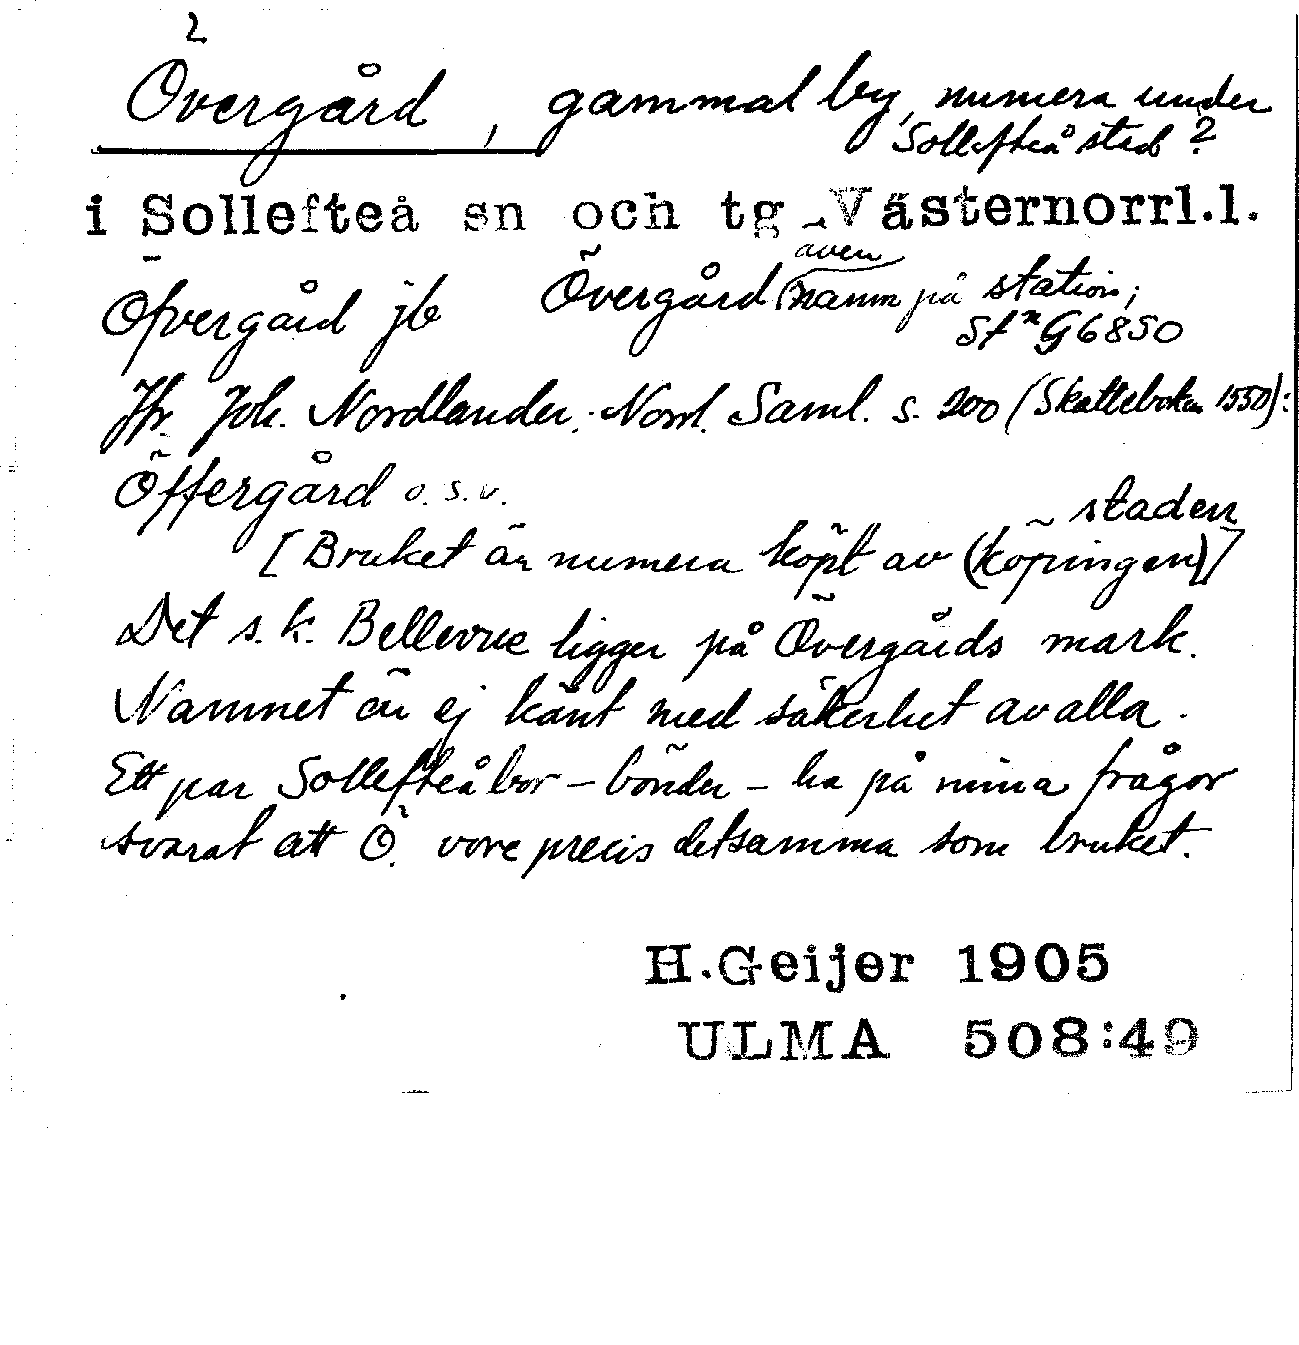 2
Övergård, gammal by, numera under
Sollefteå stad?
i Sollefteå sn och tg Västernorrl.l.
Öfvergård jb Övergård även namn på station;
stn G6850
Jfr. Joh. Nordlander. Norrl. Saml. s. 200 (Skatteboken 1550):
Öffergård o.s.v.
[Bruket är numera köpt av (köpingen) staden]
Det s.k. Bellevue ligger på Övergårds mark.
Namnet är ej känt med säkerhet av alla.
Ett par Sollefteåbor - bönder - ha på mina frågor
svarat att Ö. vore precis detsamma som bruket.
H.Geijer 1905
ULMA 508:49